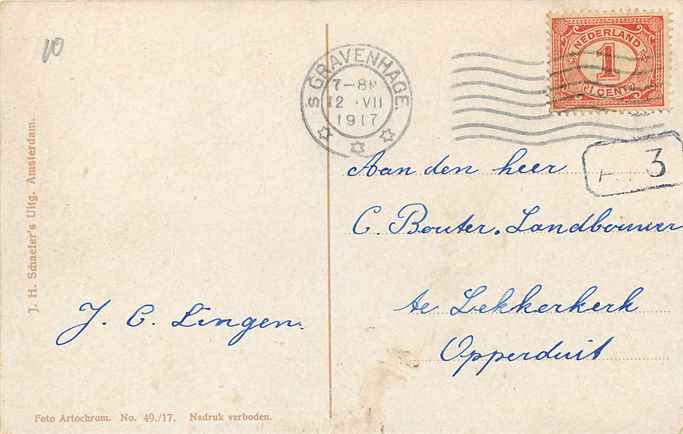 10
J. H. Schaefer's Uitg. Amsterdam.
J. C. Lingen.
Foto Artochrom. No. 49./17. Nadruk verboden.
'S GRAVENHAGE.
7-8N
12 .VII
1917
NEDERLAND
1
1 CENT
3
Aan den heer
C. Bouter. Landbouwer
te Lekkerkerk
Opperduit